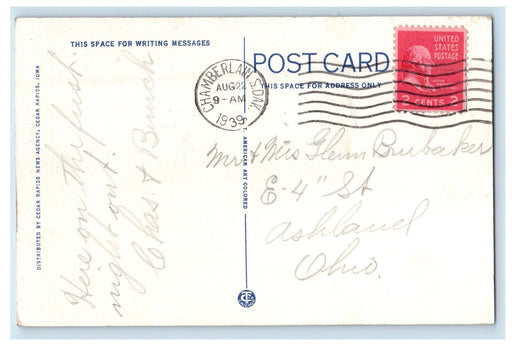 THIS SPACE FOR WRITING MESSAGES
POST CARD
THIS SPACE FOR ADDRESS ONLY
UNITED
STATES
POSTAGE
2 CENTS 2
CHAMBERLAIN, S.DAK.
AUG 22
9-AM
1939
Here on the first
night out.
Chas &
Mr & Mrs Glenn Brubaker
E-4" St
Ashland
Ohio.
DISTRIBUTED BY CEDAR RAPIDS NEWS AGENCY, CEDAR RAPIDS, IOWA
T. AMERICAN ART COLORED